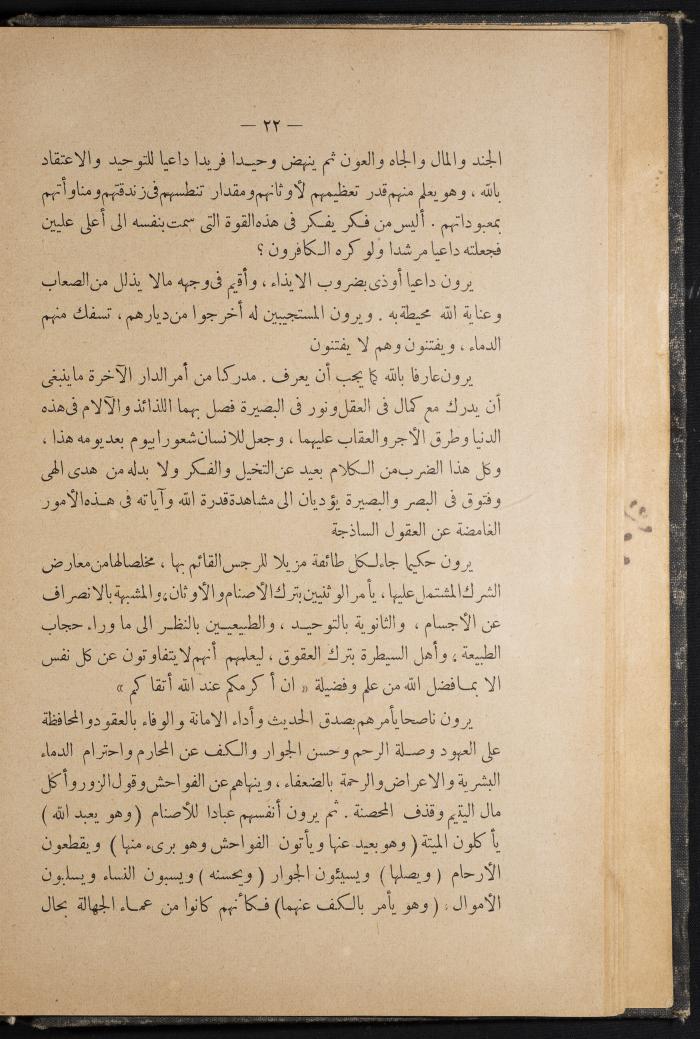 — ٢٢ —
الجند والمال والجاه والعون ثم ينهض وحيدا فريدا داعيا للتوحيد والاعتقاد
بالله ، وهو يعلم منهم قدر تعظيمهم لأوثانهم ومقدار تنطسهم فى زندقتهم ومناوأتهم
بمعبوداتهم . أليس من فكر يفكر فى هذه القوة التى سمت بنفسه الى أعلى عليين
فجعلته داعيا مرشدا ولو كره الكافرون ؟
يرون داعيا أوذى بضروب الايذاء ، وأقيم فى وجهه مالا يذلل من الصعاب
وعناية الله محيطة به . ويرون المستجيبين له أخرجوا من ديارهم ، تسفك منهم
الدماء ، ويفتنون وهم لا يفتنون
يرون عارفا بالله كما يجب أن يعرف . مدركا من أمر الدار الآخرة ماينبغى
أن يدرك مع كمال فى العقل ونور فى البصيرة فصل بهما اللذائذ والآلام فى هذه
الدنيا وطرق الأجر والعقاب عليهما ، وجعل للانسان شعورا بيوم بعد يومه هذا ،
وكل هذا الضرب من الكلام بعيد عن التخيل والفكر ولا بدله من هدى الهى
وفتوق فى البصر والبصيرة يؤديان الى مشاهدة قدرة الله وآياته فى هذه الأمور
الغامضة عن العقول الساذجة
يرون حكيما جاء لكل طائفة مزيلا للرجس القائم بها ، مخلصالها من معارض
الشرك المشتمل عليها ، يأمر الوثنيين بترك الأصنام والأوثان ، والمشبهة بالانصراف
عن الأجسام ، والثانوية بالتوحيد ، والطبيعيين بالنظر الى ما وراء حجاب
الطبيعة ، وأهل السيطرة بترك العقوق ، ليعلمهم أنهم لايتفاوتون عن كل نفس
الا بما فضل الله من علم وفضيلة « ان أكرمكم عند الله أتقاكم »
يرون ناصحا يأمرهم بصدق الحديث وأداء الامانة والوفاء بالعقود والمحافظة
على العهود وصلة الرحم وحسن الجوار والكف عن المحارم واحترام الدماء
البشرية والاعراض والرحمة بالضعفاء ، وينهاهم عن الفواحش وقول الزور وأكل
مال اليتيم وقذف المحصنة . ثم يرون أنفسهم عبادا للأصنام ( وهو يعبد الله )
يأكلون الميتة ( وهو بعيد عنها ويأتون الفواحش وهو برىء منها ) ويقطعون
الأرحام ( ويصلها ) ويسيئون الجوار ( ويحسنه ) ويسبون النساء ويسلبون
الأموال ، ( وهو يأمر بالكف عنهما ) فكأنهم كانوا من عماء الجهالة بحال